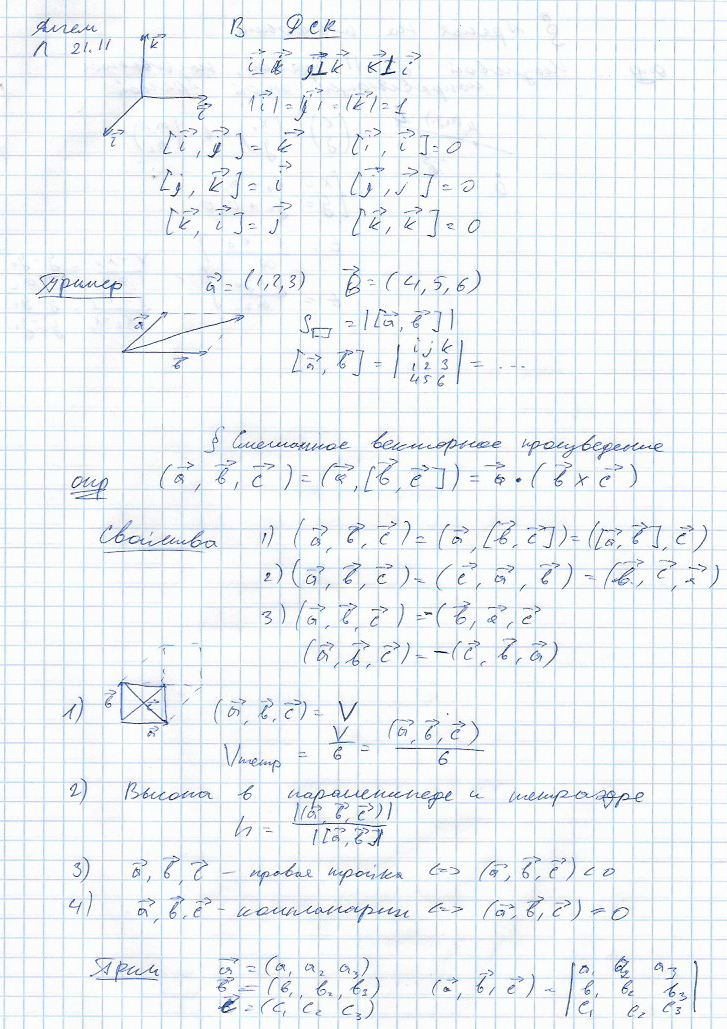 Ангем В ДСК
Л 21.11
k⃗
i⃗⊥k⃗ j⃗⊥k⃗ k⃗⊥i⃗
|i⃗|=|j⃗|=|k⃗|=1
i⃗
[i⃗, j⃗] = k⃗ [i⃗, i⃗] = 0
[j⃗, k⃗] = i⃗ [j⃗, j⃗] = 0
[k⃗, i⃗] = j⃗ [k⃗, k⃗] = 0
Пример a⃗ = (1,2,3) B⃗ = (4,5,6)
a⃗ S▭ = |[a⃗, в⃗]|
в⃗ [a⃗, в⃗] = | i j k
1 2 3
4 5 6 | = ...
§ Смешанное векторное произведение
опр (a⃗, в⃗, c⃗) = (a⃗, [в⃗, c⃗]) = a⃗ • (в⃗ × c⃗)
Свойства 1) (a⃗, в⃗, c⃗) = (a⃗, [в⃗, c⃗]) = ([a⃗, в⃗], c⃗)
2) (a⃗, в⃗, c⃗) = (c⃗, a⃗, в⃗) = (в⃗, c⃗, a⃗)
3) (a⃗, в⃗, c⃗) = -(в⃗, a⃗, c⃗
(a⃗, в⃗, c⃗) = -(c⃗, в⃗, a⃗)
1) в⃗ c⃗ a⃗ (a⃗, в⃗, c⃗) = V
Vтетр = V/6 = (a⃗, в⃗, c⃗)/6
2) Высота в параллепипеде и тетраэдре
h = |(a⃗, в⃗, c⃗)| / |[a⃗, в⃗]|
3) a⃗, в⃗, c⃗ - правая тройка <=> (a⃗, в⃗, c⃗) < 0
4) a⃗, в⃗, c⃗ - компланарны <=> (a⃗, в⃗, c⃗) = 0
Прим a⃗ = (a₁ a₂ a₃)
в⃗ = (в₁, в₂, в₃) (a⃗, в⃗, c⃗) = | a₁ a₂ a₃
в₁ в₂ в₃
c₁ c₂ c₃ |
c⃗ = (c₁ c₂ c₃)